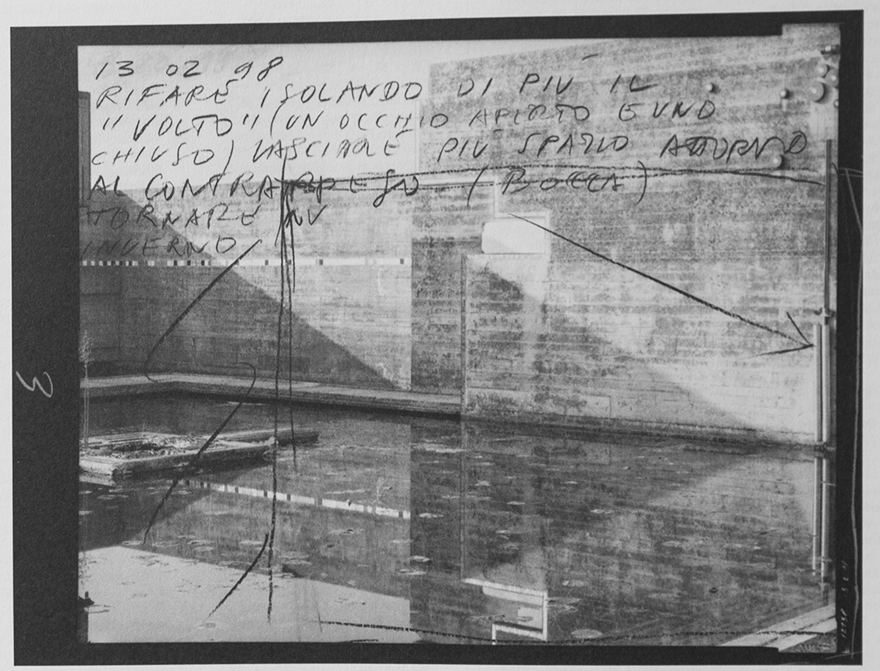 13 02 98
RIFARE ISOLANDO DI PIÙ IL
"VOLTO" (UN OCCHIO APERTO E UNO
CHIUSO) LASCIARE PIÙ SPAZIO ATTORNO
AL CONTRAPPESO (BOCCA)
TORNARE IN
INVERNO
3